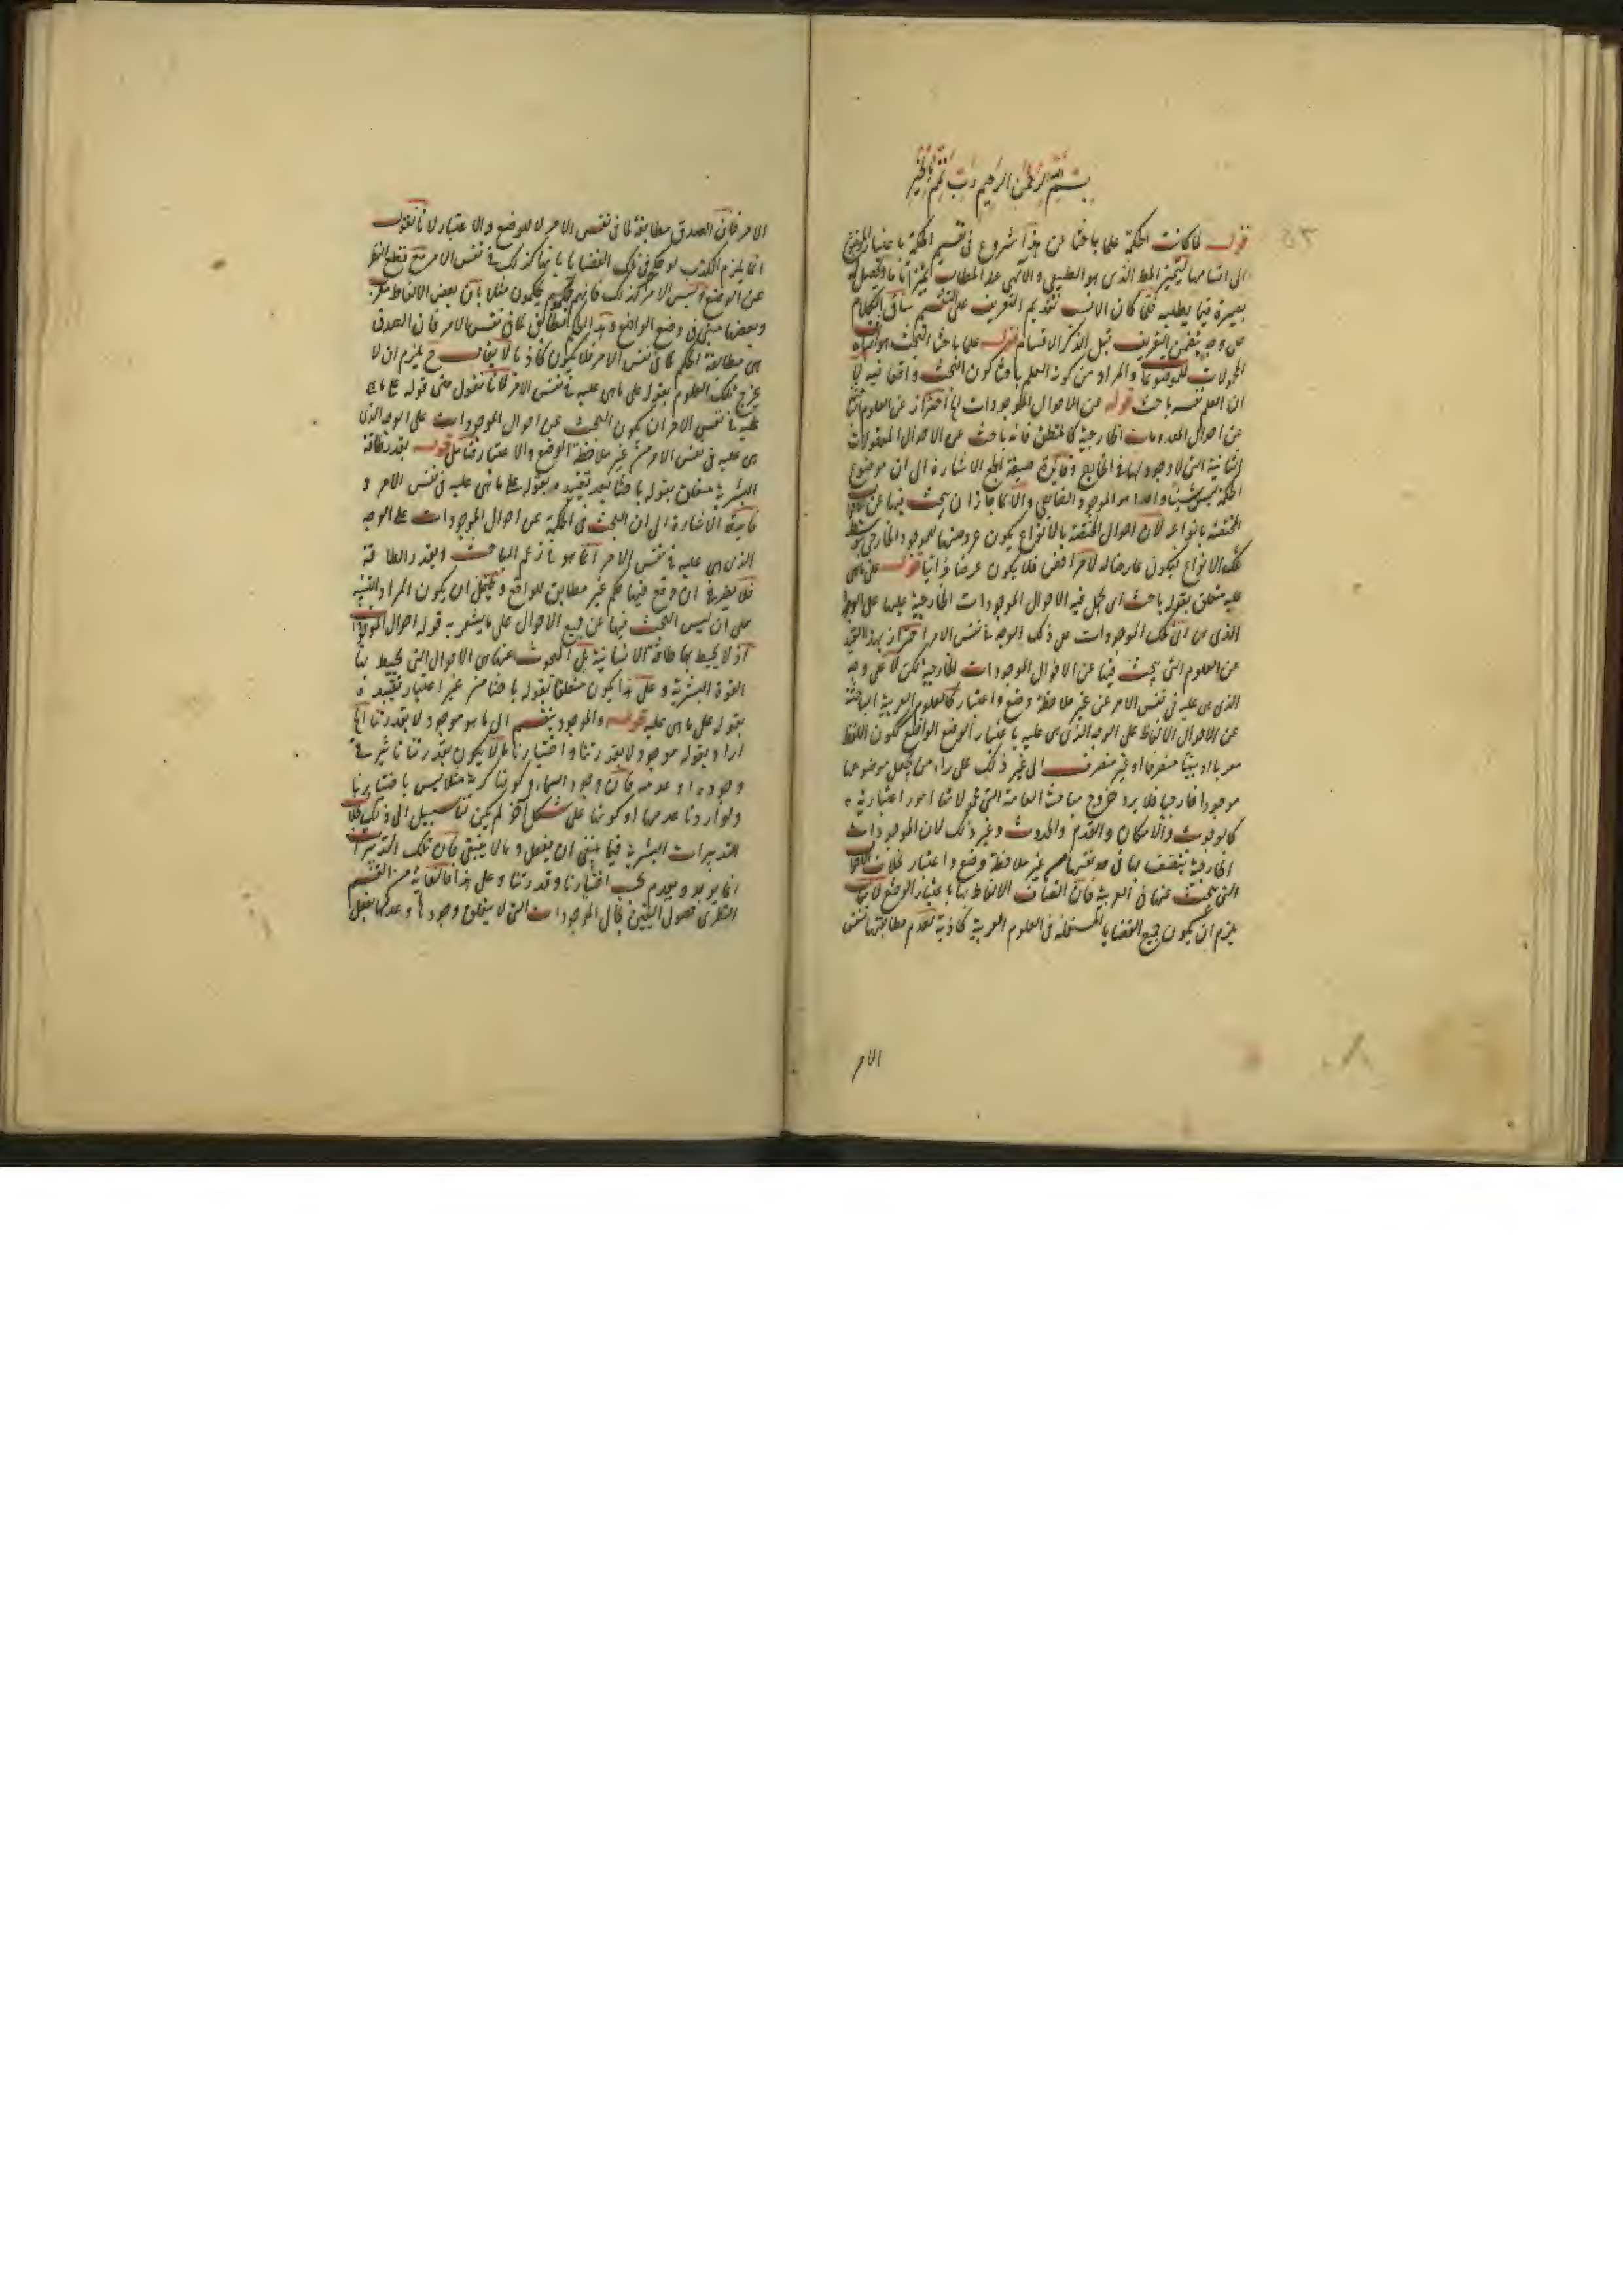 بسم الله الرحمن الرحيم رب تمم بالخير
قوله لما كانت الحكمة علما باحثا عن هذا شروع في تقسيم الحكمة باعتبار الموضوع
الى اقسامها ليتميز المط الذى هو الطبيعى والالهى عند الطالب تميزا تاما ويحصل له
بصيرة فيما يطلبه فلما كان الانسب تقديم التعريف على التقسيم ساق الكلام
على وجه يتضمن التعريف قبل الذكر الاقسام قوله علما باحثا البحث هو اثبات
المحمولات للموضوعات والمراد من كون العلم باحثا كون البحث واقعا فيه لا
ان العلم نفسه باحث قوله عن الاحوال الموجودات الخ احتراز عن العلوم الباحثة
عن احوال المعدومات الخارجية كالمنطق فانه باحث عن الاحوال المعقولات
الثانية التى لا وجود لها في الخارج وفائدة صيغة الجمع الاشارة الى ان موضوع
الحكمة ليس شيئا واحدا هو الموجود الخارجى والا لما جاز ان يبحث فيها عن الاحوال
المختصة بانواعه لان احوال المختصة بالانواع يكون عروضها للموجود الخارجى بتوسط
تلك الانواع فيكون عارضا له لامر اخص فلا يكون عرضا ذاتيا قوله على ما هى
عليه متعلق بقوله باحث اى يحمل فيه الاحوال الموجودات الخارجية عليها على الوجه
الذى هى اى تلك الموجودات على ذلك الوجه في نفس الامر احتراز بهذا القيد
عن العلوم التى يبحث فيها عن الاحوال الموجودات الخارجية لكن لا على وجه
الذى هى عليه في نفس الامر عن غير ملاحظة وضع واعتبار كالعلوم العربية الباحثة
عن الاحوال الالفاظ على الوجه الذى هى عليه باعتبار الوضع الواضع ككون اللفظ
معربا او مبنيا منصرفا او غير منصرف الى غير ذلك على راى من يجعل موضوعها
موجودا خارجيا فلا يرد خروج مباحث العامة التى محمولاتها امور اعتبارية
كالوجوب والامكان والقدم والحدوث وغير ذلك لان الموجودات
الخارجية يتصف بها في حد نفسها من غير ملاحظة وضع واعتبار بخلاف الاحوال
التى يبحث عنها في العربية فان اتصاف الالفاظ بها باعتبار الوضع لا يقال
يلزم ان يكون جميع القضايا المستعملة في العلوم العربية كاذبة لعدم مطابقتها لنفس
الامر
الامر فان الصدق مطابقة لما في نفس الامر لا للوضع والاعتبار لانا نقول
انما يلزم الكذب لو حكم في تلك القضايا بانها كذلك في نفس الامر مع قطع النظر
عن الوضع وليس الامر كذلك فانهم يحكمون مثلا بان بعض الالفاظ معرب
وبعضها مبنى في وضع الواضع وهذا الحكم مطابق لما في نفس الامر فان الصدق
هى مطابقة الحكم لما في نفس الامر فلا يكون كاذبا لا يقال ح يلزم ان لا
يخرج تلك العلوم بقوله على ما هى عليه في نفس الامر لانا نقول معنى قوله على ما هى
عليه في نفس الامر ان يكون البحث عن احوال الموجودات على الوجه الذى
هى عليه في نفس الامر من غير ملاحظة الوضع والاعتبار فتأمل قوله بقدر طاقة
البشرية متعلق بقوله باحثا بعد تقييده بقوله على ما هى عليه في نفس الامر و
فائدته الاشارة الى ان البحث في الحكمة عن احوال الموجودات على الوجه
الذى هى عليه في نفس الامر انما هو في زعم الباحث بقدر الطاقة
فلا يضر في ان وقع فيها حكم غير مطابق للواقع ويحتمل ان يكون المراد التنبيه
على ان ليس البحث فيها عن جميع الاحوال على ما يشعر به قوله احوال الموجودات
اذ لا يحيط بها طاقة الانسانية بل المبحوث عنها هى الاحوال التى يحيط بها
القوة البشرية وعلى هذا يكون متعلقا بقوله باحثا من غير اعتبار تقييده
بقوله على ما هى عليه قوله والموجود ينقسم الى ما هو موجود لا بقدرتنا الخ
اراد بقوله موجود لا بقدرتنا واختيارنا ما لا يكون بقدرتنا تاثير في
وجوده او عدمه فان وجود السماء وكونها كرية مثلا ليس باختيارنا
ولو اردنا عدمها او كونها على شكل آخر لم يكن لنا سبيل الى ذلك بخلاف
التدبيرات البشرية فيما ينبغى ان يفعل وما لا ينبغى فان تلك التدبيرات
انما يوجد ويعدم بحسب اختيارنا وقدرتنا وعلى هذا فالغاية من القسم
النظرى حصول اليقين بحال الموجودات التى لا يتعلق وجودها وعدمها بفعل